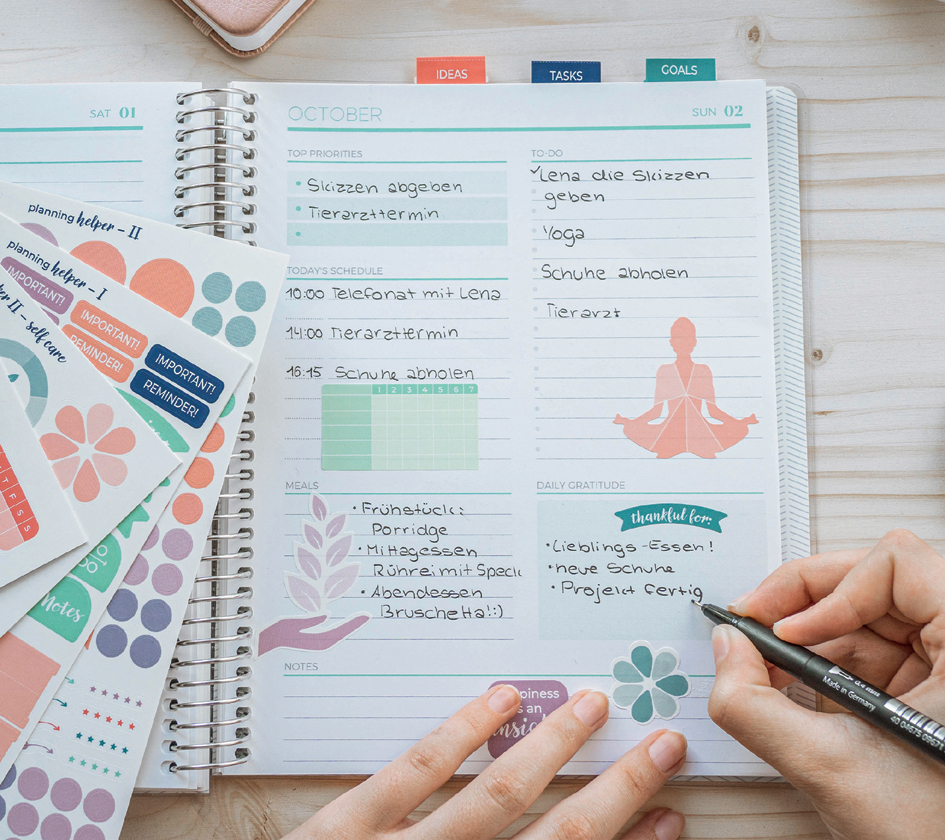 IDEAS
TASKS
GOALS
SAT 01
OCTOBER
SUN 02
TOP PRIORITIES
• Skizzen abgeben
• Tierarzttermin
TODAY'S SCHEDULE
10:00 Telefonat mit Lena
14:00 Tierarzttermin
16:15 Schuhe abholen
1 2 3 4 5 6 7
MEALS
• Frühstück:
Porridge
• Mittagessen
Rührei mit Speck
• Abendessen
Bruschetta!:)
NOTES
TO-DO
✓Lena die Skizzen
geben
Yoga
Schuhe abholen
Tierarzt
DAILY GRATITUDE
thankful for:
• Lieblings-Essen!
• neue Schuhe
• Projekt fertig
planning helper – II
planning helper – I
IMPORTANT!
IMPORTANT!
REMINDER!
IMPORTANT!
REMINDER!
II – self care
T F S S
Notes
is an
Made in Germany